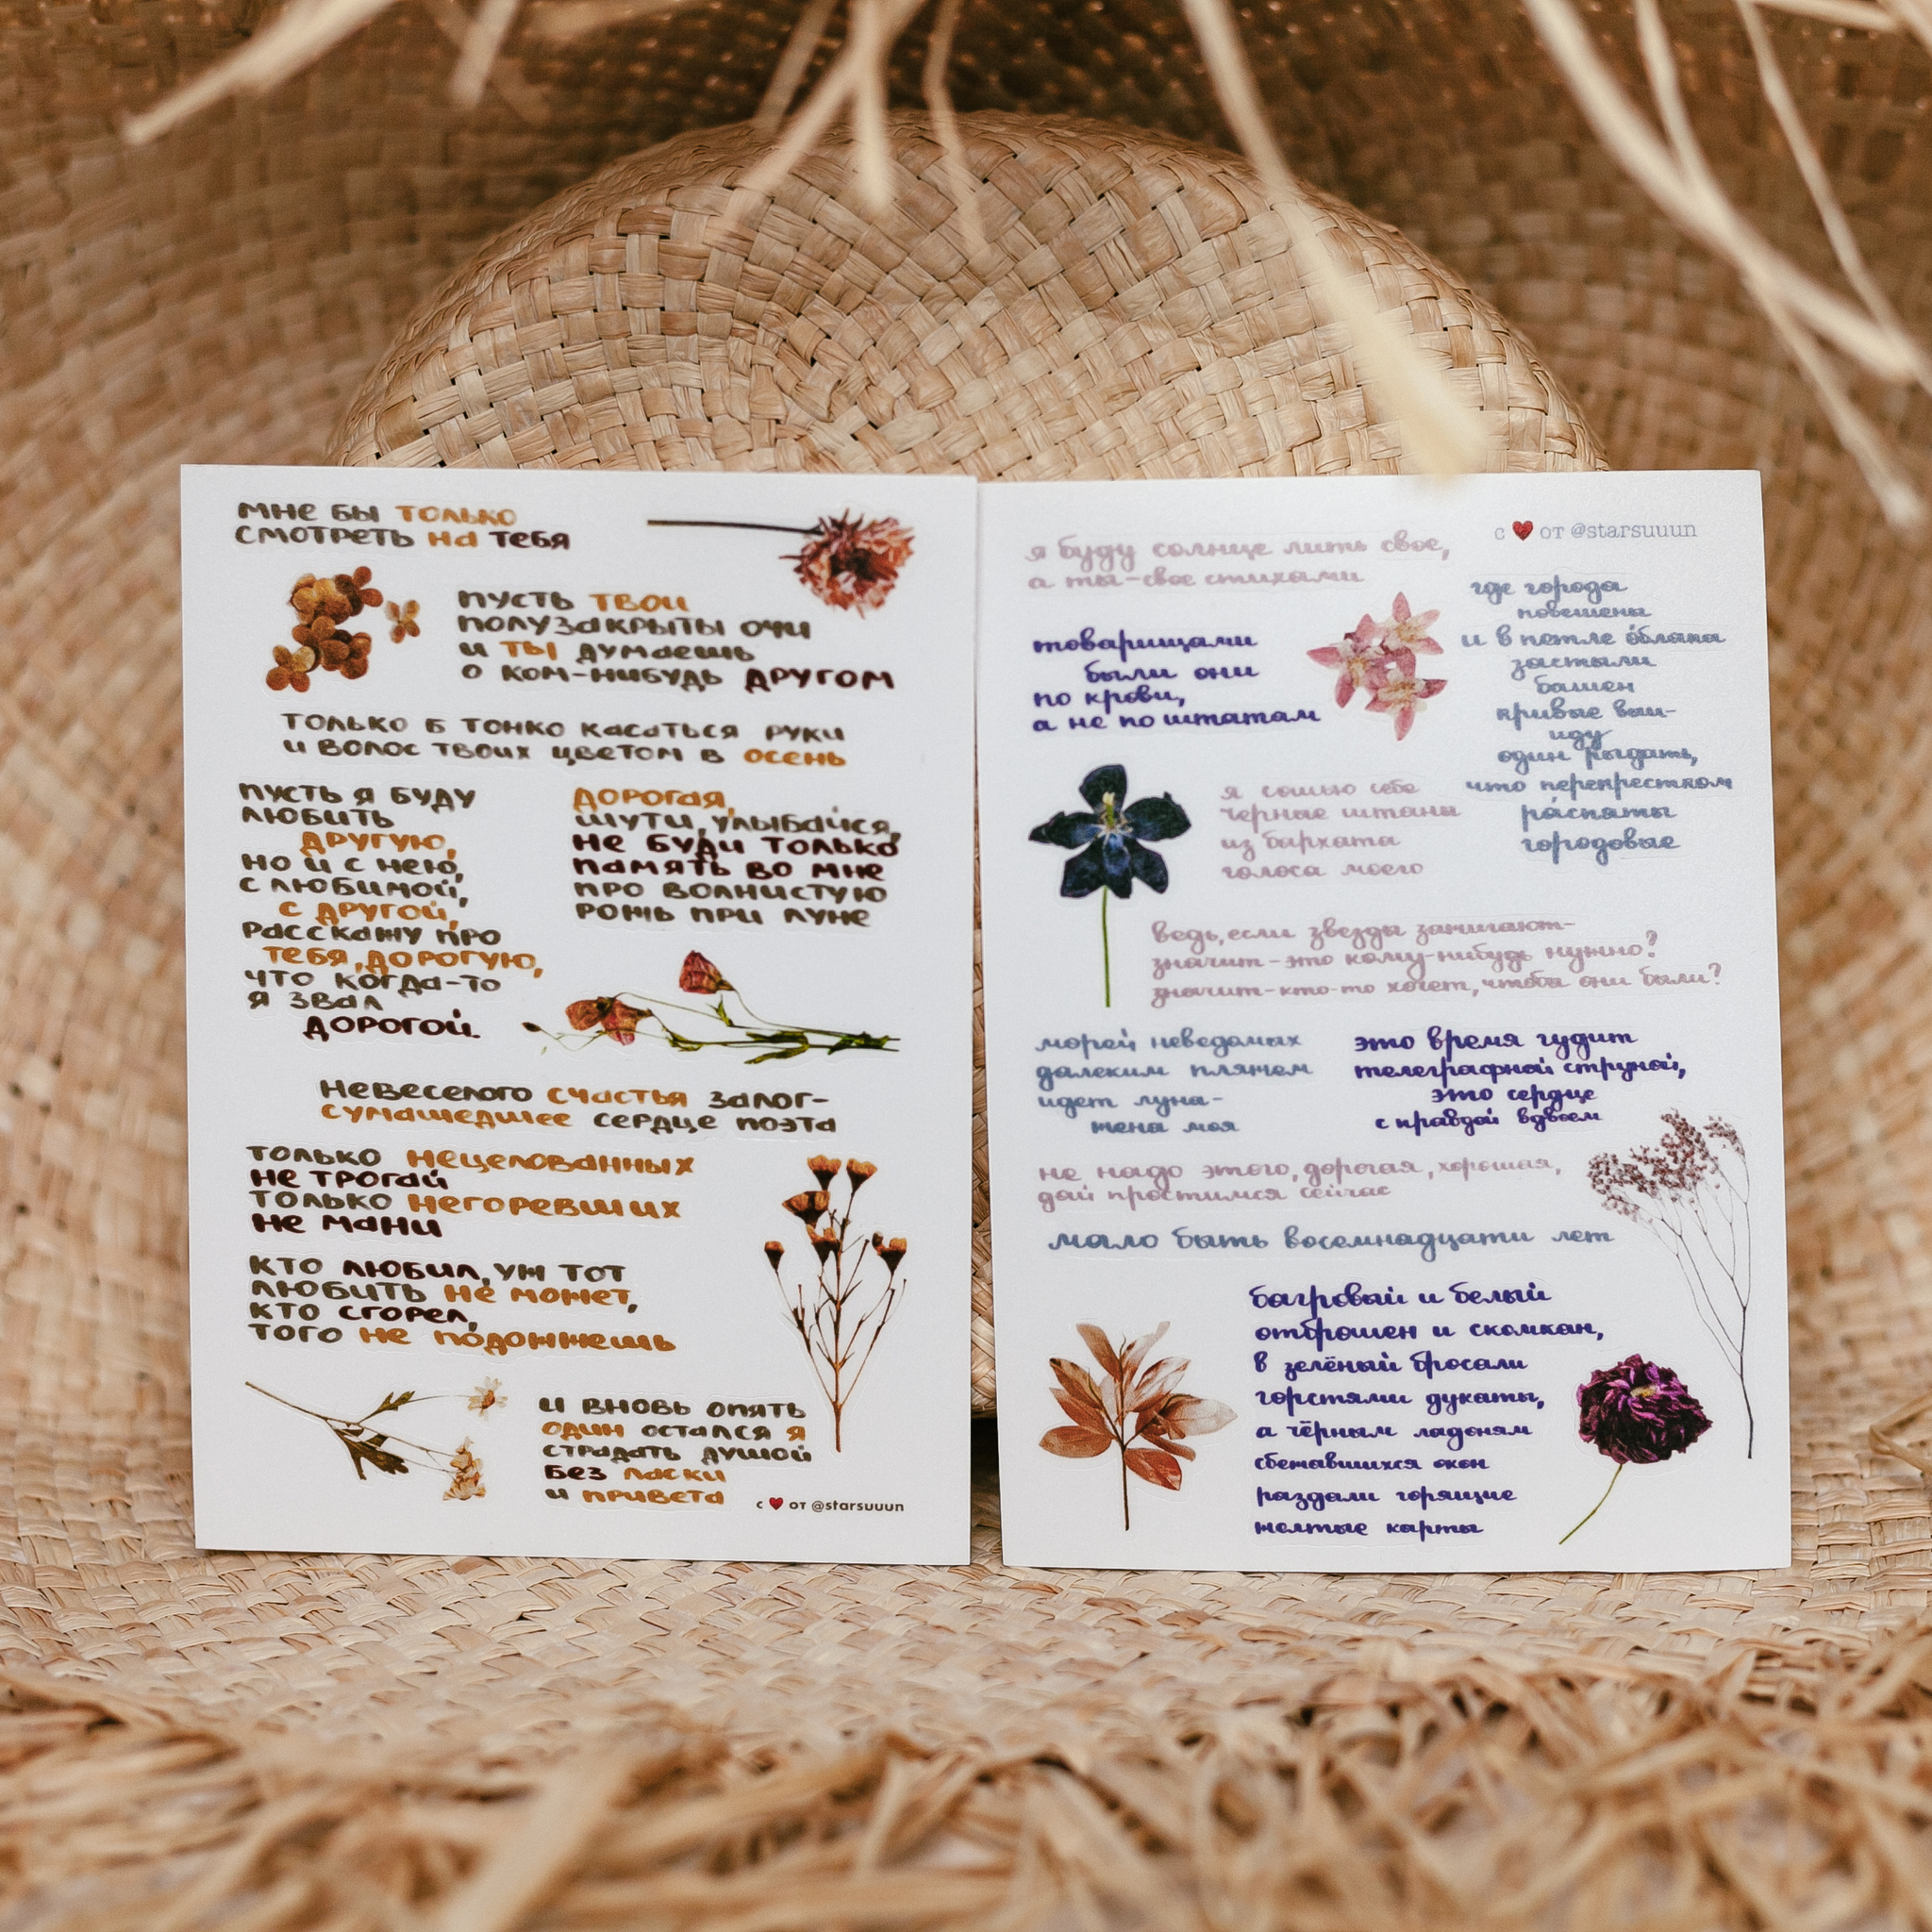 мне бы только
смотреть на тебя
пусть твои
полузакрыты очи
и ты думаешь
о ком-нибудь другом
только б тонко касаться руки
и волос твоих цветом в осень
пусть я буду
любить
другую,
но и с нею,
с любимой,
с другой,
расскажу про
тебя, дорогую,
что когда-то
я звал
дорогой.
дорогая,
шути, улыбайся,
не буди только
память во мне
про волнистую
рожь при луне
невеселого счастья залог-
сумашедшее сердце поэта
только нецелованных
не трогай
только негоревших
не мани
кто любил, уж тот
любить не может,
кто сгорел,
того не подожжешь
и вновь опять
один остался я
страдать душой
без ласки
и привета
с ❤ от @starsuuun
с ❤ от @starsuuun
я буду солнце лить свое,
а ты-свое стихами
где города
повешены
и в петле о́блака
застыли
башен
кривые выи-
иду
один рыдать,
что перекрестком
ра́спяты
городовые
товарищами
были они
по крови,
а не по штатам
я сошью себе
черные штаны
из бархата
голоса моего
ведь, если звезды зажигают-
значит-это кому-нибудь нужно?
значит-кто-то хочет, чтобы они были?
морей неведомых
далеким пляжем
идет луна-
жена моя
это время гудит
телеграфной струной,
это сердце
с правдой вдвоем
не надо этого, дорогая, хорошая,
дай простимся сейчас
мало быть восемнадцати лет
багровый и белый
отброшен и скомкан,
в зелёный бросали
горстями дукаты,
а чёрным ладоням
сбежавшихся окон
раздали горящие
желтые карты